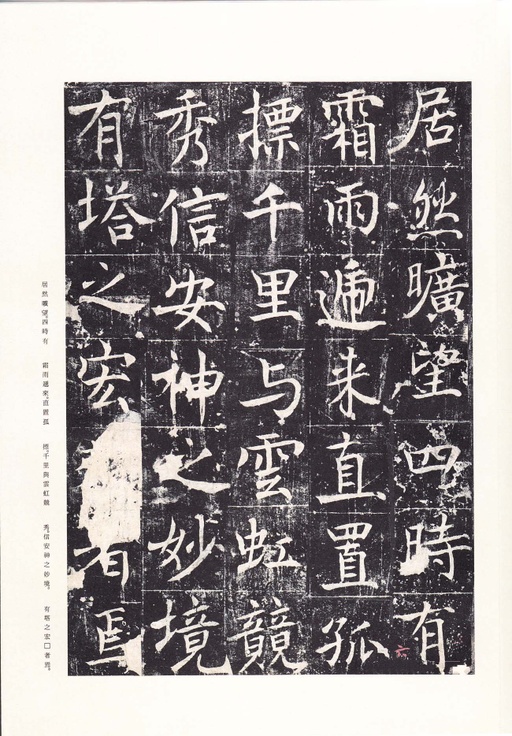 居然曠望四時有
霜雨遞来直置孤
摽千里与雲虹競
秀信安神之妙境
有塔之宏者焉
六
居然曠望。四時有
霜雨遞來。直置孤
摽。千里與雲虹競
秀。信安神之妙境。
有塔之宏□者焉。